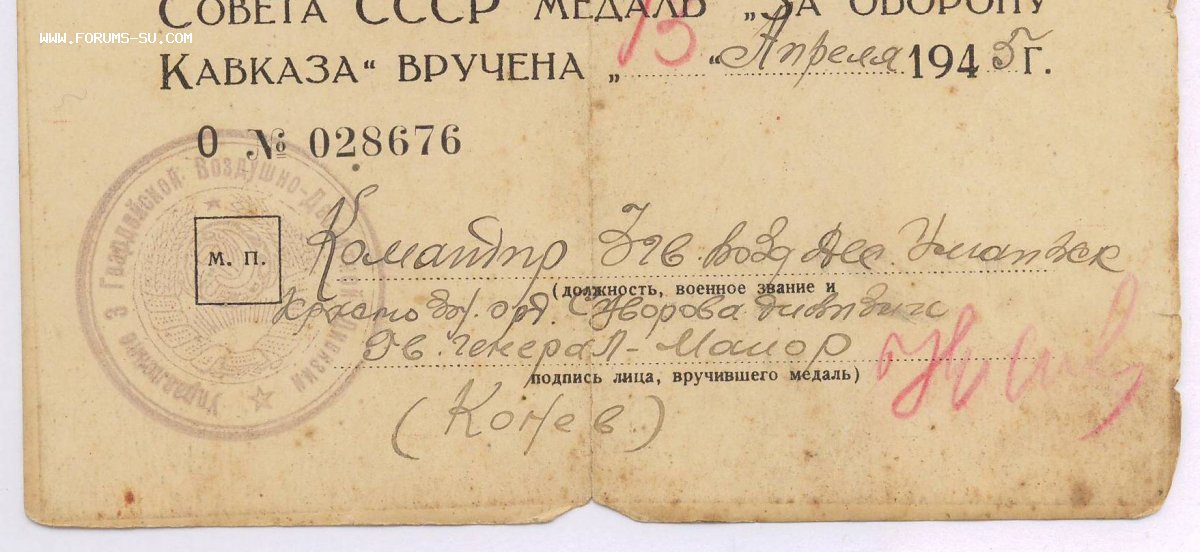 Совета СССР медаль „За оборону
www.forums-su.com
Кавказа“ вручена „15“ Апреля 1945 г.
О № 028676
Управление 3 Гвардейской Воздушно-Де
дивизия
М. П.
Командир 3 гв. возд дес Уманск
(должность, военное звание и
орд. Суворова дивизии
Гв. генерал-майор
подпись лица, вручившего медаль)
(Конев)